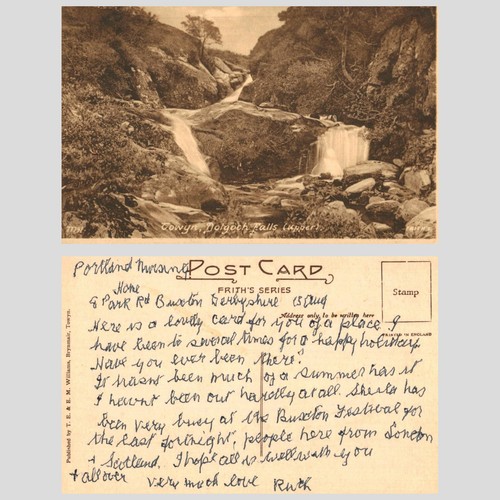 Towyn, Dolgoch Falls (Upper).
Portland Nursing
Home
POST CARD
FRITH'S SERIES
8 Park Rd Buxton Derbyshire 15 Aug
Address only to be written here
Stamp
PRINTED IN ENGLAND
Here is a lovely card for you of a place I
have been to several times for a happy holiday.
Have you ever been there?
It hasnt been much of a summer has it
I havnt been out hardly at all. Sheila has
been very busy at the Buxton Festival for
the last fortnight, people here from London
+ Scotland. I hope all is well with you
+ all over very much love Ruth
Published by T. E. & E. M. Williams, Brynmair, Towyn.